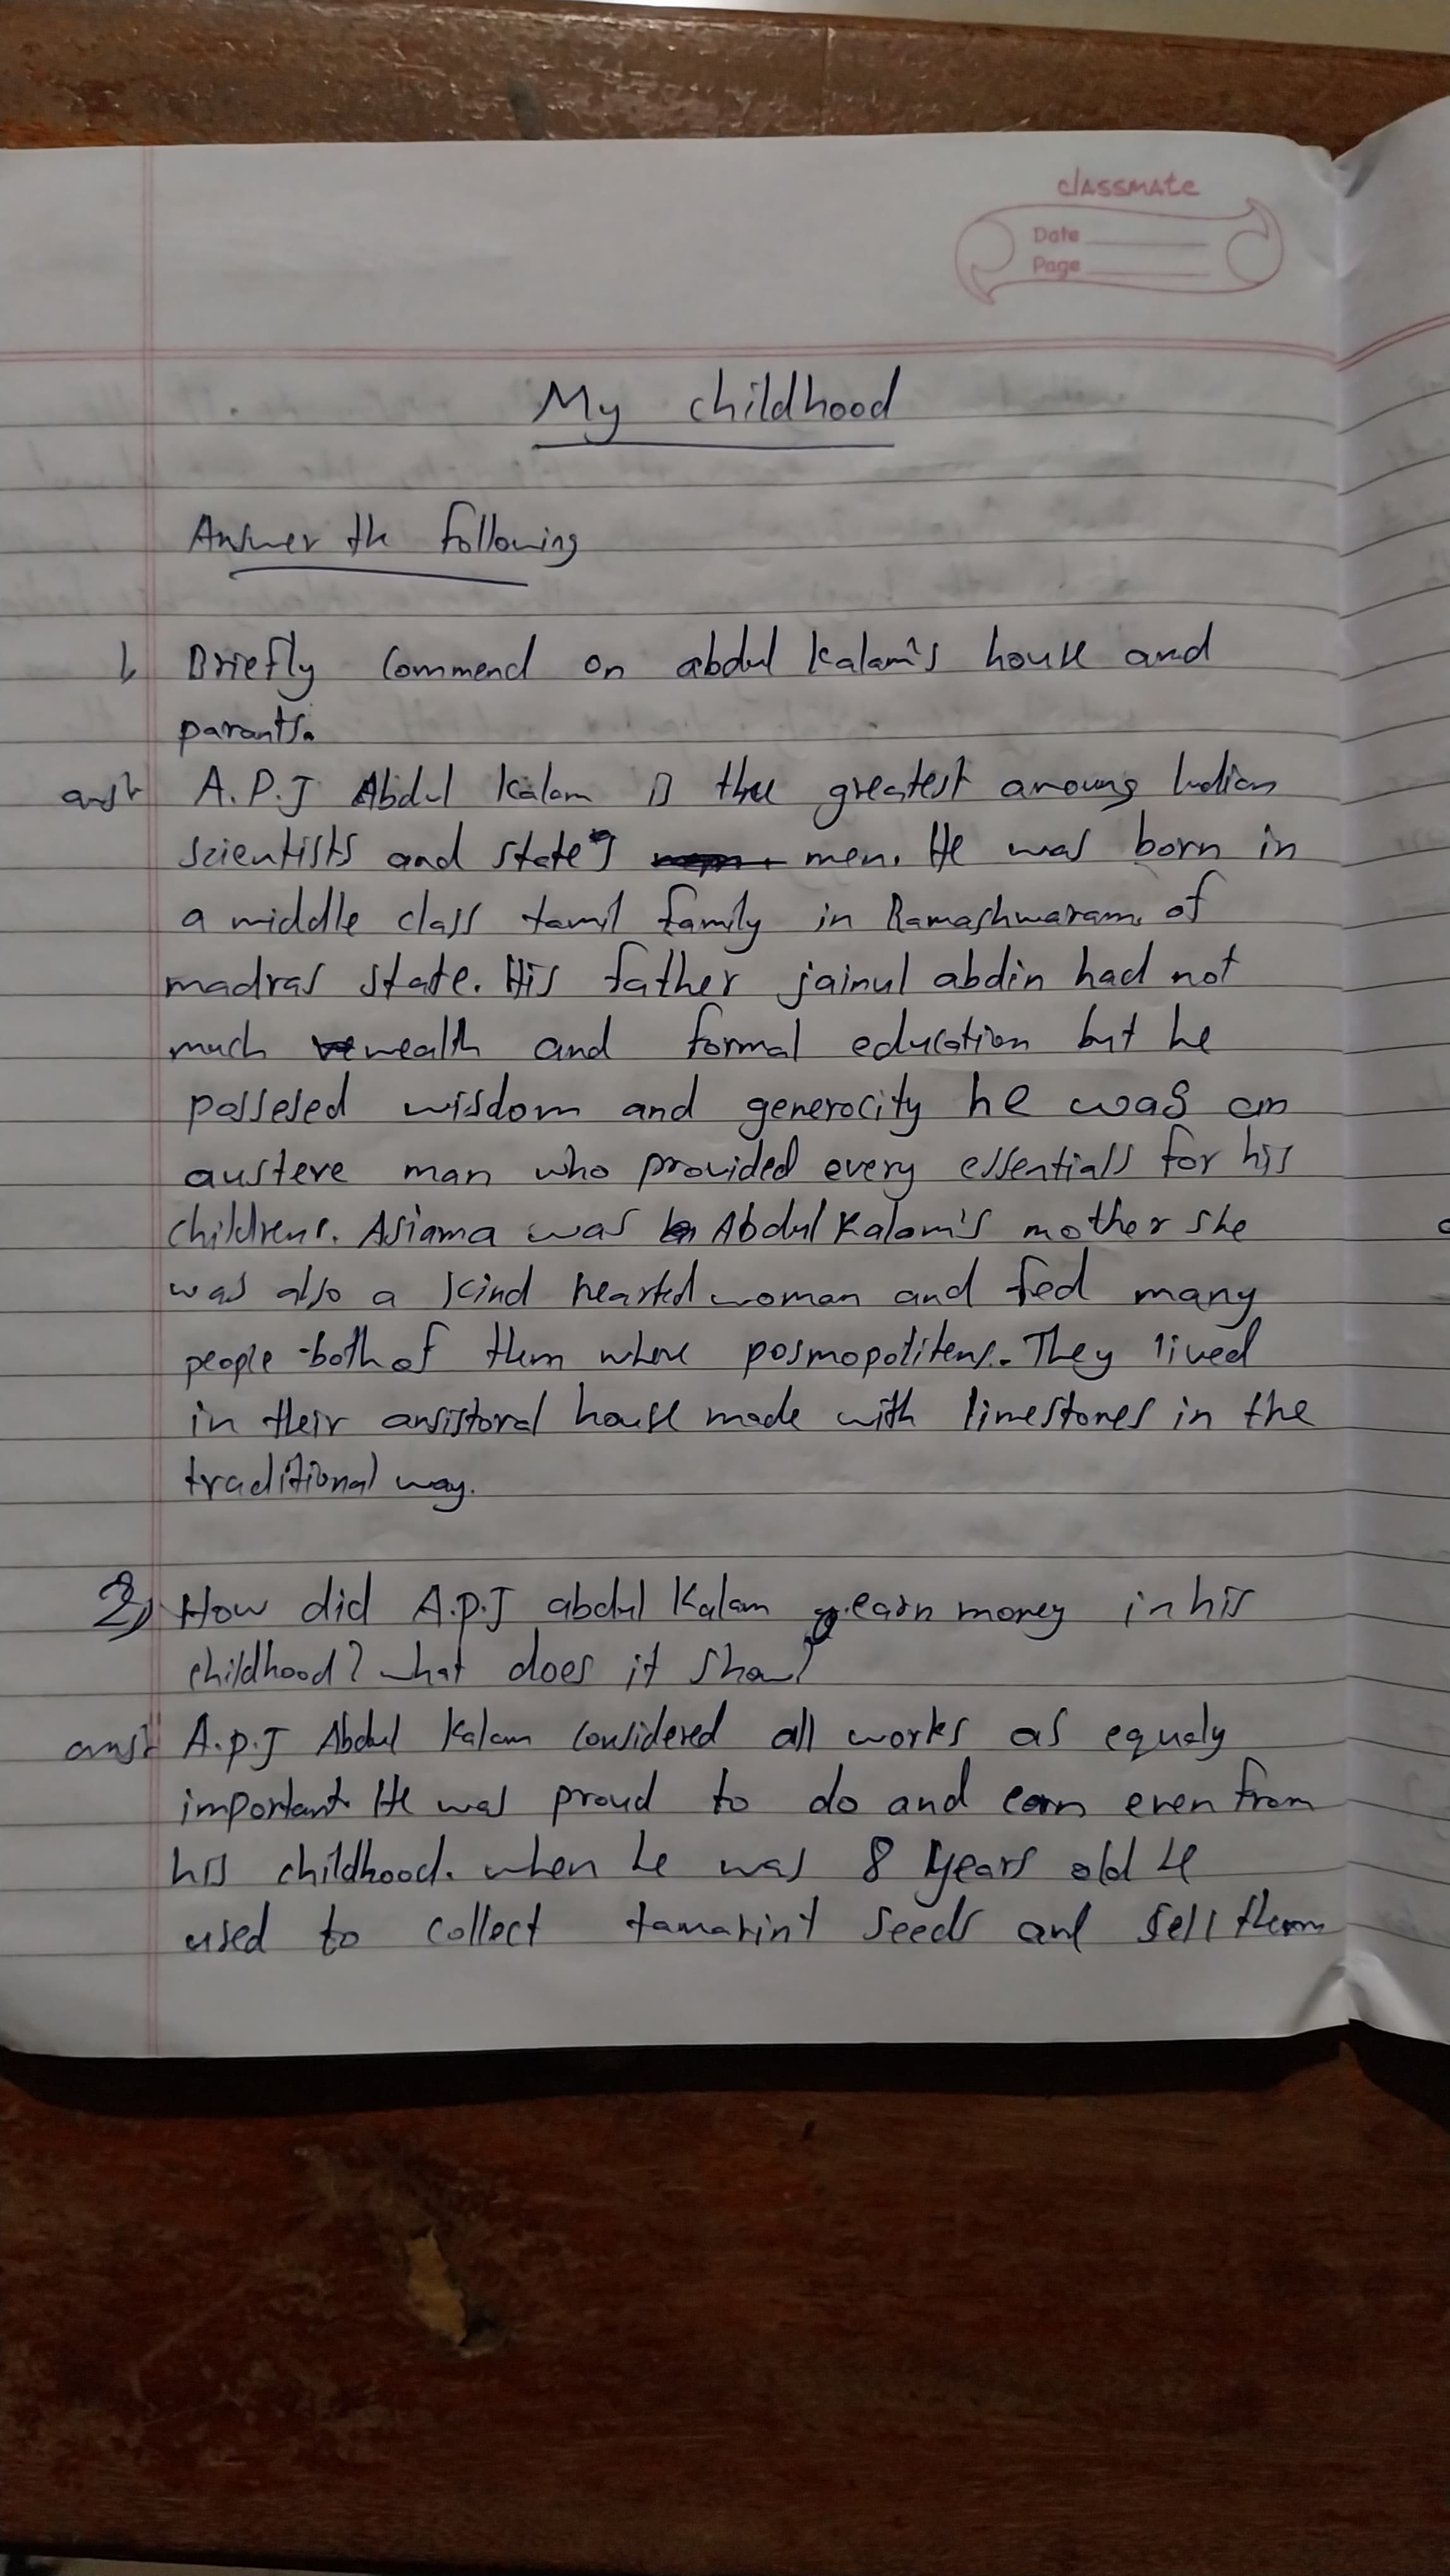 classmate
Date
Page
My childhood
Answer the following
1, Briefly Commend on abdul kalam's house and
parants.
ans: A.P.J Abdul Kalam is the greatest amoung Indian
scientists and state's men. He was born in
a middle class tamil family in Ramashwaram, of
madras state. His father jainul abdin had not
much wealth and formal education but he
possesed wisdom and generocity he was an
austere man who provided every essentials for his
childrens. Asiama was Abdul Kalam's mother she
was also a kind hearted woman and fed many
people both of them where posmopolitens. They lived
in their ansistoral house made with limestones in the
traditional way.
2) How did A.P.J abdul Kalam earn money in his
childhood? what does it show?
ans: A.p.J Abdul Kalam considered all works as equaly
important. He was proud to do and earn even from
his childhood. when he was 8 years old he
used to collect tamarint seeds and sell them